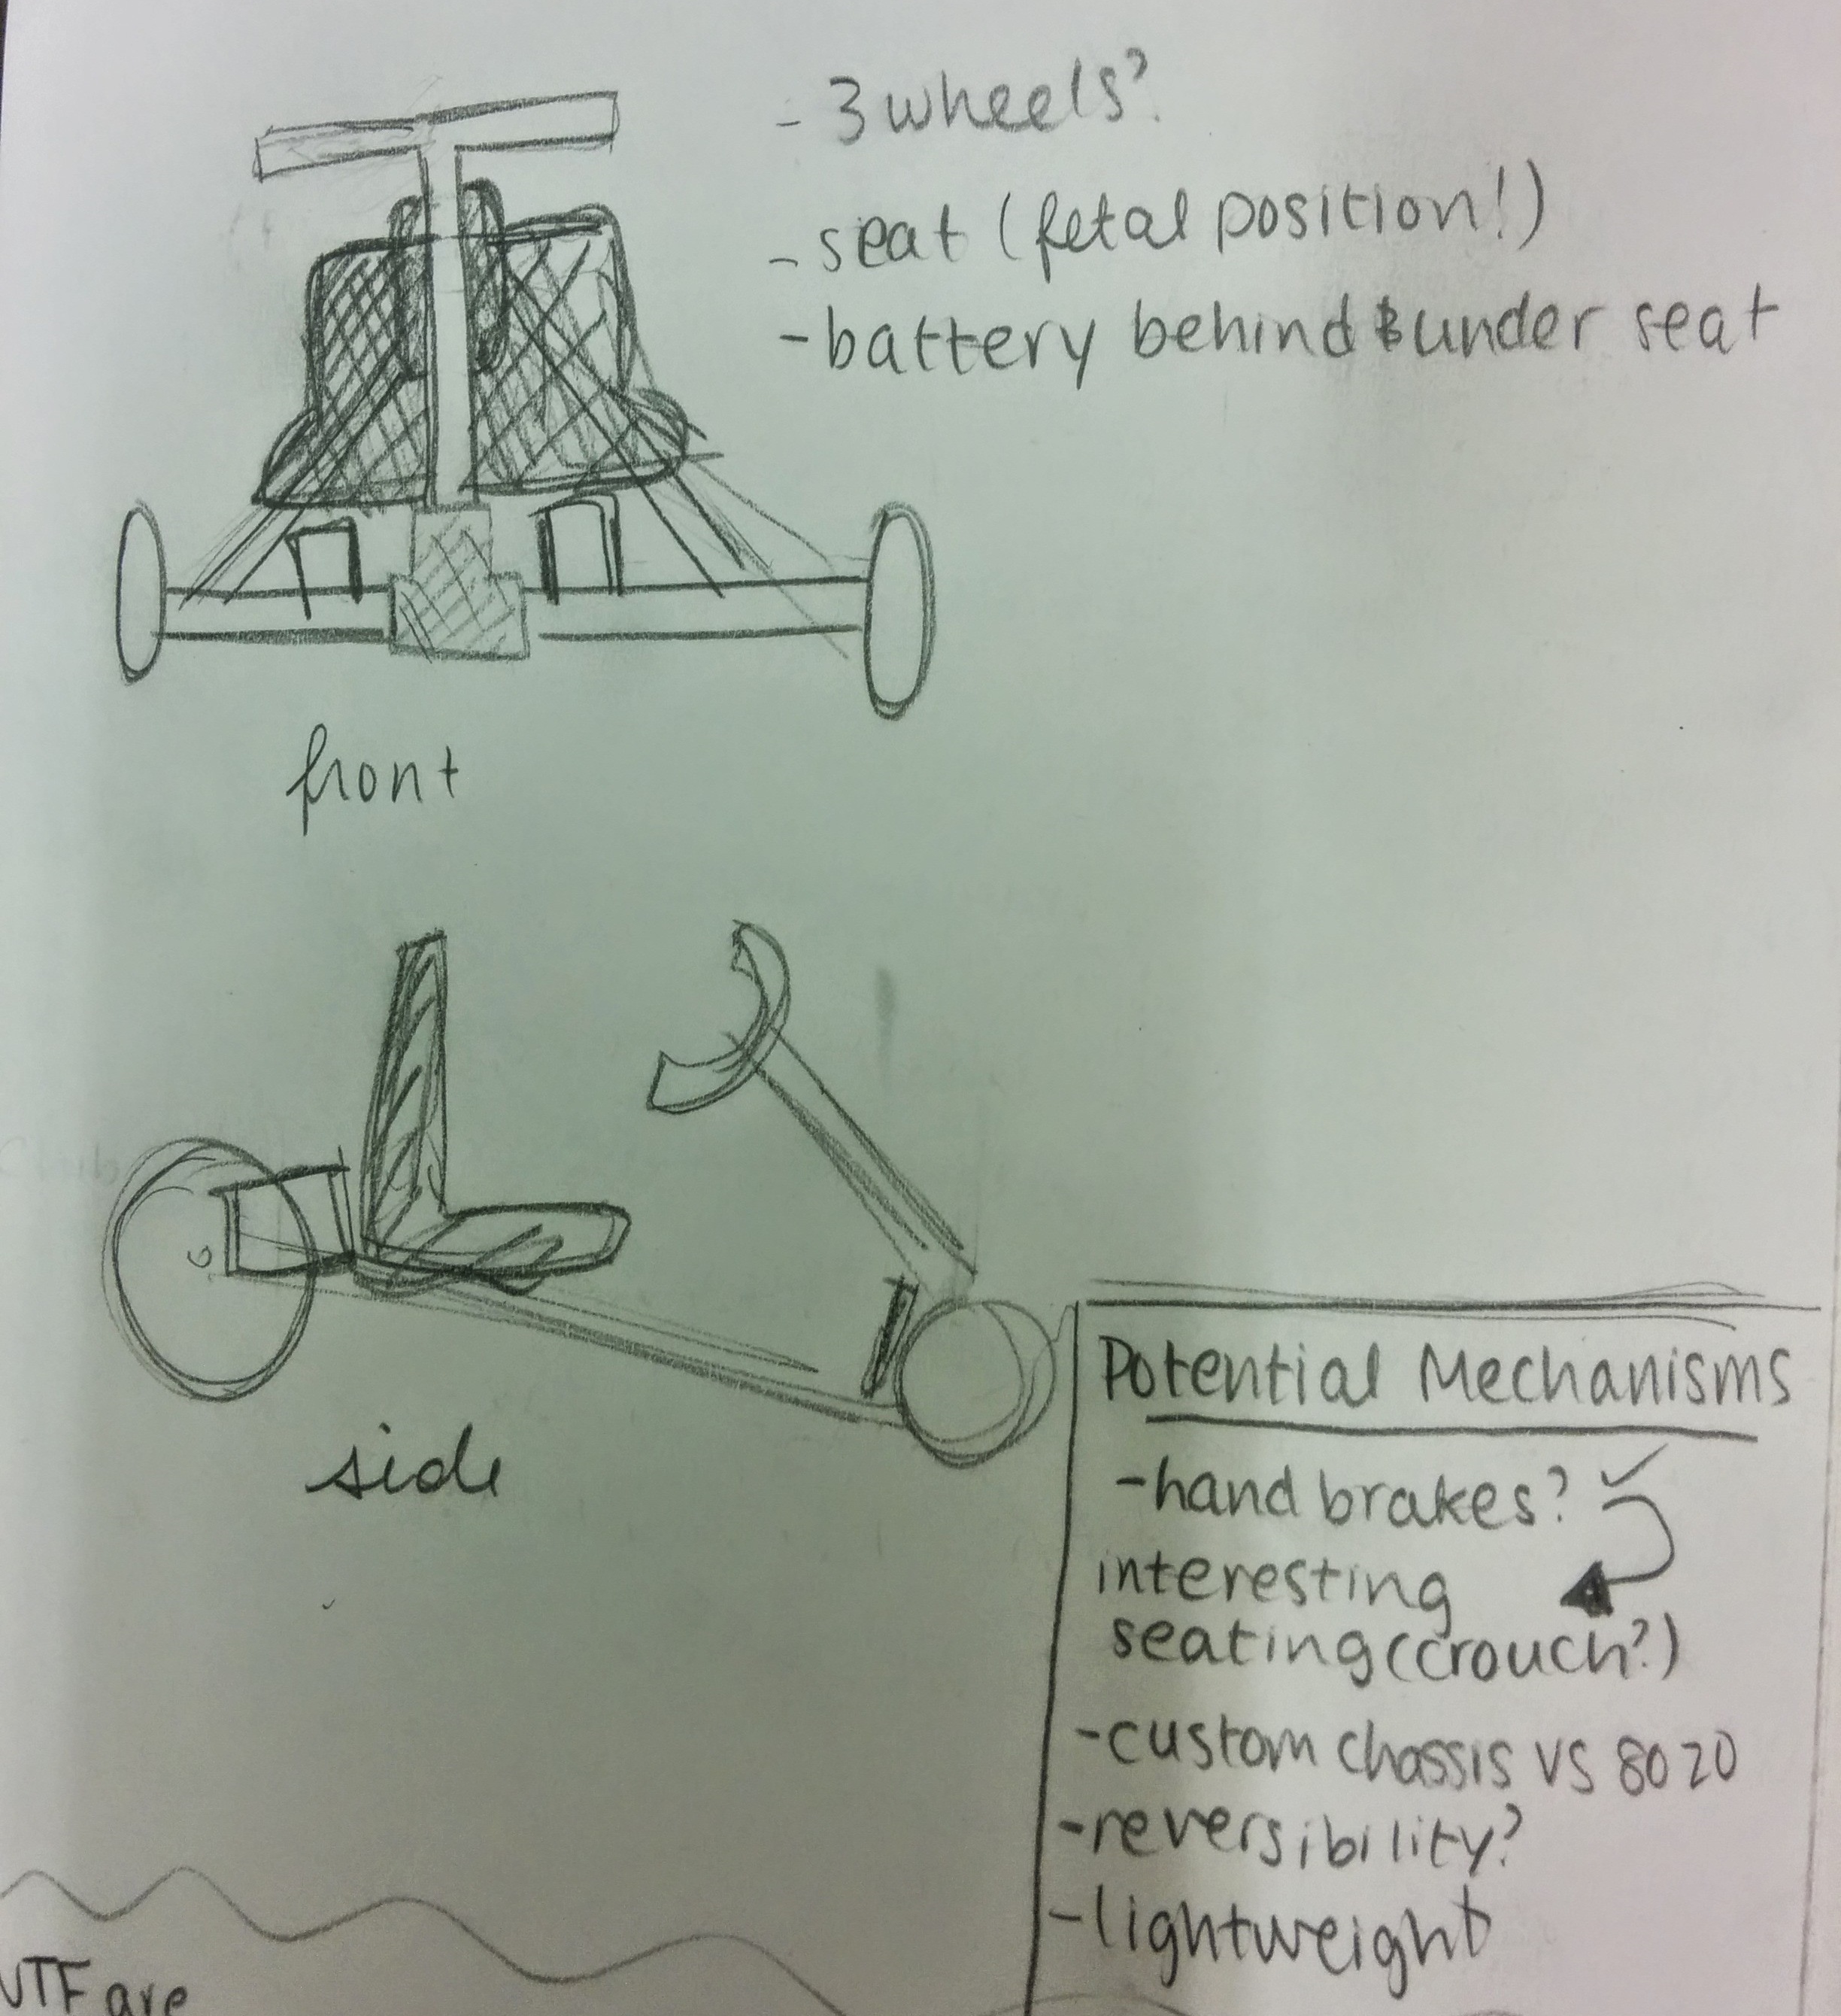 - 3 wheels?
- seat (fetal position!)
- battery behind & under seat
front
side
Potential Mechanisms
- hand brakes? ✓
interesting
seating (crouch?)
- custom chassis vs 8020
- reversibility?
- lightweight
are